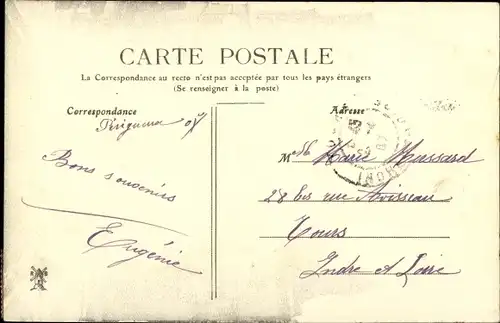 CARTE POSTALE
La Correspondance au recto n'est pas acceptée par tous les pays étrangers
(Se renseigner à la poste)
Correspondance
Adresse
07
Bons souvenirs
Eugénie
Mlle Marie Mussard
28 bis rue Avisseau
Tours
Indre et Loire